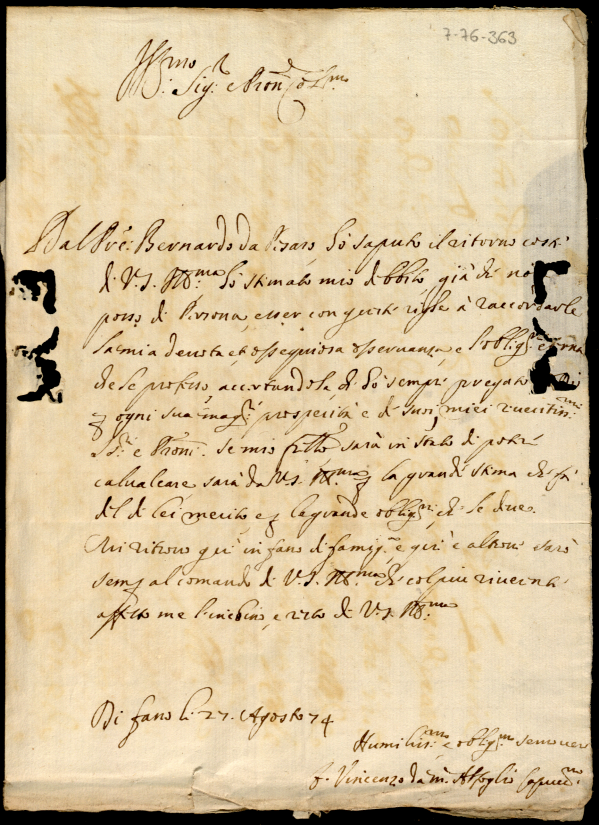 7-76-363
Ill.mo
Sig.r e Pron Col.mo
Dal Pre: Bernardo da Pesaro hò saputo il ritorno costì
di V.S. Ill.ma hò stimato mio debbito, già che nō
posso di Persona, esser con queste righe à raccordarle
la mia devota, et ossequiosa osservanza, e l'oblig.ne eterna
che le professo, accertandola, di hò sempre pregato Dio
ogni sua mag.r prosperità e di suoi miei riveritis.mi
SS.ri e Proni. Se mio frello sarà in stato di poter
cavalcare sarà da V.S. Ill.ma la grande stima che fà
del di lei merito e la grande oblig.ne che le deve.
Mi ritrovo qui in fano di famig.a e qui e altrove sarò
sem al comando di V.S. Ill.ma che col più riverente
affetto me l'inchino, e resto di V.S. Ill.ma
Di fano li 27. Agosto 74
Humilis.mo e oblig.mo servo ver
f. Vincenzo da Capucc.no